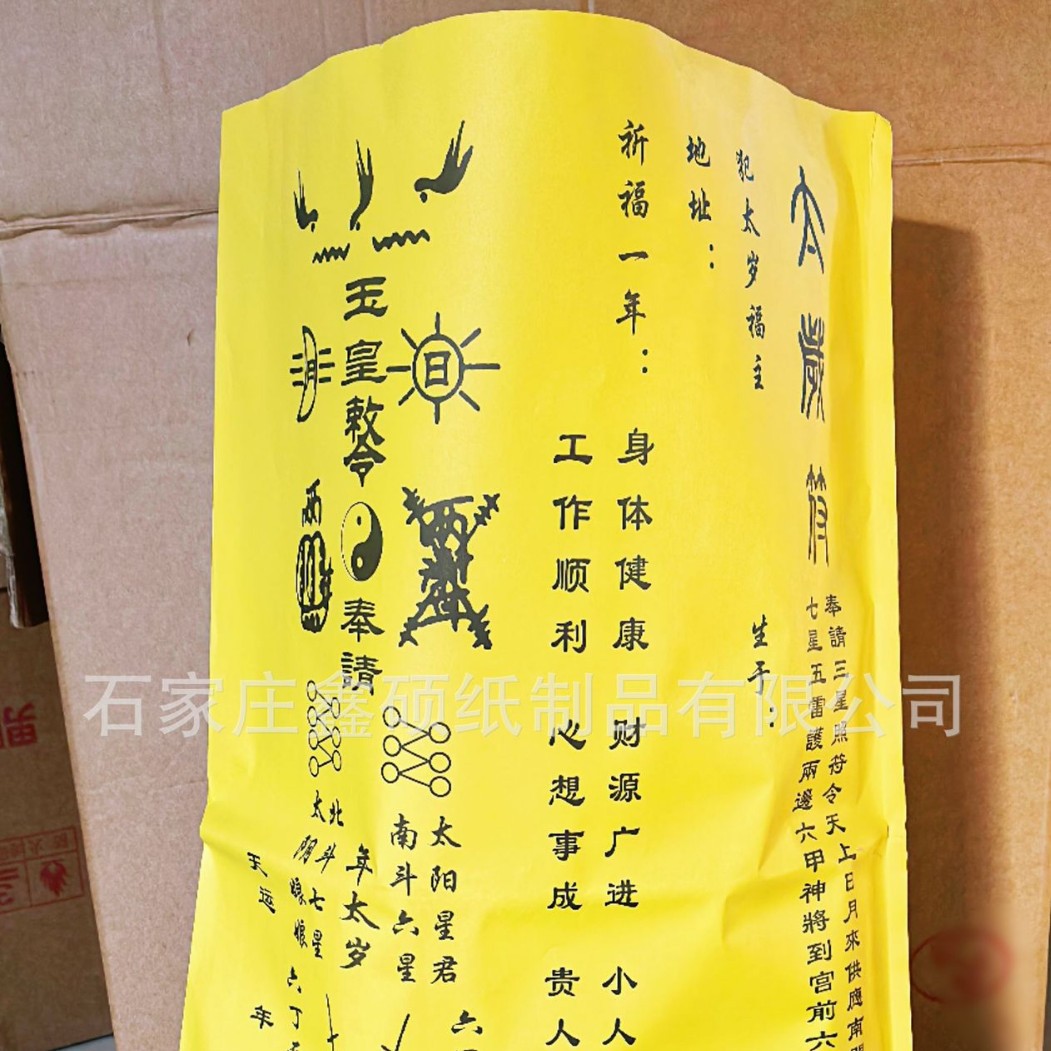 太歲符
奉請三星照符令天上日月來供應南
七星五雷護兩邊六甲神將到宫前六
犯太岁福主
生于：
地址：
祈福一年：
身体健康 财源广进 小人
工作顺利 心想事成 贵人
日
太阳星君
南斗六星
六
玉皇敕令
奉請
年太岁
月
北斗七星
太阴娘娘
六丁
天运
年
石家庄鑫硕纸制品有限公司
男